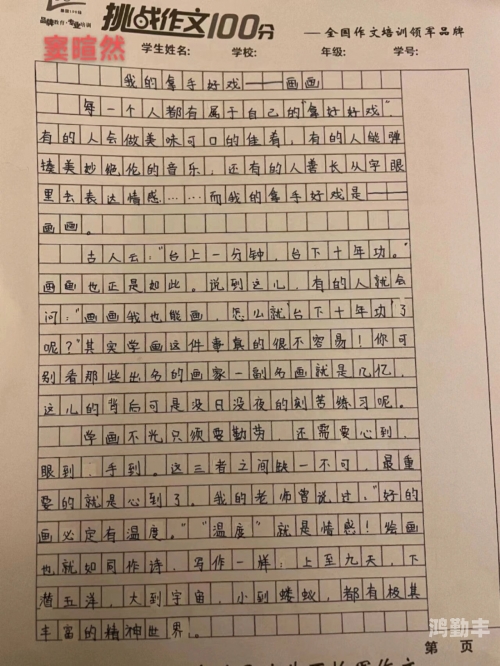 挑战作文100分
——全国作文培训领军品牌
窦暄然
学生姓名: 学校: 年级: 学号:
我的拿手好戏——画画
每一个人都有属于自己的“拿好好戏”,
有的人会做美味可口的佳肴,有的人能弹
揍美妙绝伦的音乐,还有的人善长从字眼
里去表达情感……而我的拿手好戏是——
画画。
古人云:“台上一分钟,台下十年功。”
画画也正是如此。说到这儿,有的人就会
问:“画画我也能画,怎么就‘台下十年功’了
呢?”其实学画这件事真的很不容易!你可
别看那些出名的画家一副名画就是几亿,
这儿的背后可是没日没夜的刻苦练习呢。
学画不光只须要勤劳,还需要心到、
眼到、手到。这三者之间缺一不可,最重
要的就是心到了。我的老师曾说过:“好的
画必定有温度。”“温度”就是情感!绘画
也就如同作诗,写作一样:上至九天,下
潜五洋,大到宇宙,小到蝼蚁,都有极其
丰富的精神世界。
鸿勤丰
第 页